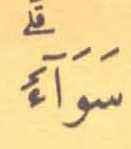 قلے
سَوَآءٌ